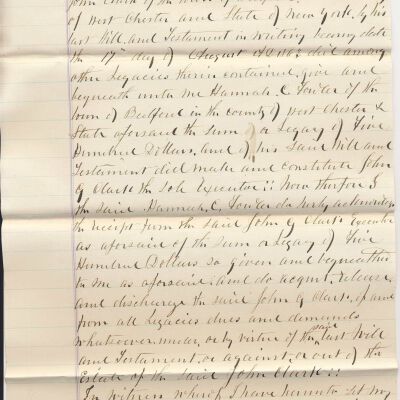 John Clark of the
of West Chester and State of New York, by his
last Will and Testament in writing bearing date
the 17th day of August did among
other Legacies therein contained, give and
bequeath unto me Hannah. C. Fowler of the
town of Bedford in the county of West Chester &
State aforesaid the Sum or a Legacy of Five
Hundred Dollars, and of his Said Will and
Testament did make and constitute John
G Clark the Sole Executor:: Now therefore I
the said Hannah. C. Fowler do herby acknowledge
the receipt from the said John G Clark executor
as aforesaid of the Sum or Legacy of Five
Hundred Dollars so given and bequeathed
to me as aforesaid and do acquit, release
and discharge the said John G Clark, of and
from all Legacies dues and demands
whatsoever, under, or by virtue of the said last Will
and Testament, or against, or out of the
Estate of the said John Clark::
In witness whereof I have hereunto set my